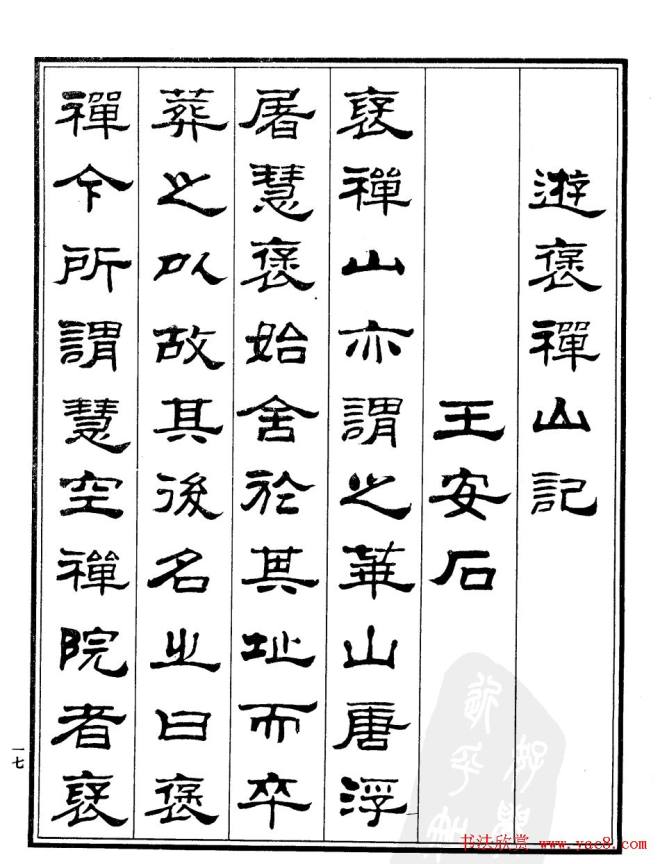 遊褒禪山記
王安石
襃禪山亦謂之華山唐浮
屠慧褒始舍於其址而卒
葬之以故其後名之曰褒
禪今所謂慧空禪院者襃
一七
书法欣赏 www.yac8.com